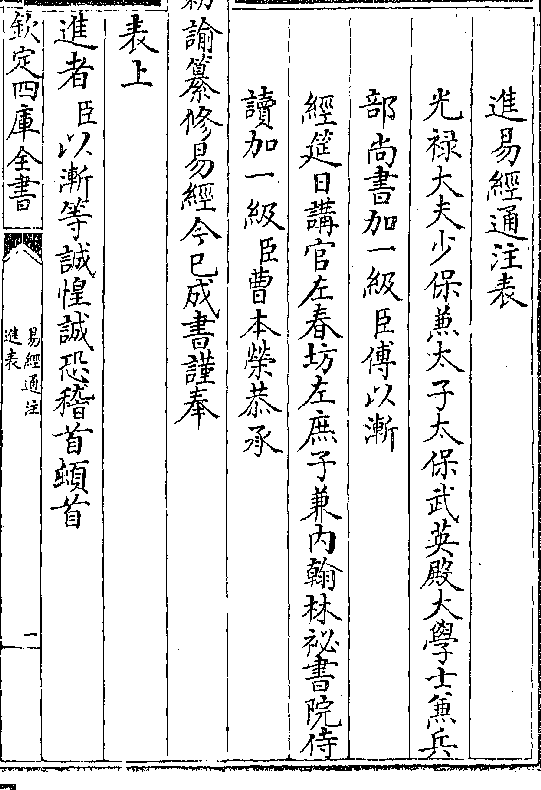 進易經通注表
光禄大夫少保兼太子太保武英殿大學士兼兵
部尚書加一級臣傅以漸
經筵日講官左春坊左庶子兼内翰林祕書院侍
讀加一級臣曹本榮恭承
諭纂修易經今已成書謹奉
表上
進者臣以漸等誠惶誠恐稽首頓首
欽定四庫全書
易經通注
進表
一